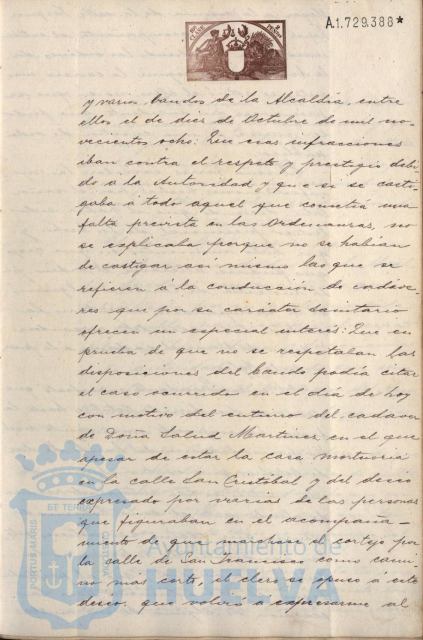 A.1.729.388*
y varios bandos de la Alcaldia, entre
ellos el de diez de Octubre de mil no-
vecientos ocho: Que esas infracciones
iban contra el respeto y prestigio debi-
do á la Autoridad y que si se casti-
gaba á todo aquel que cometia una
falta prevista en las Ordenanzas, no
se explicaba porque no se habian
de castigar asi mismo las que se
refieren á la conducción de cadave-
res que por su carácter sanitario
ofrecen un especial interés: Que en
prueba de que no se respetaban las
disposiciones del bando podia citar
el caso ocurrido en el dia de hoy
con motivo del entierro del cadaver
de Doña Salud Martinez, en el que
apesar de estar la casa mortuoria
en la calle San Cristóbal y del deseo
expresado por varias de las personas
que figuraban en el acompaña-
miento de que marchase el cortejo por
la calle de San Francisco como cami-
no mas corto, el clero se opuso a este
deseo, que volvió á expresarme al
PORTUS MARIS ET TERRÆ CUSTODIA
Ayuntamiento de
HUELVA